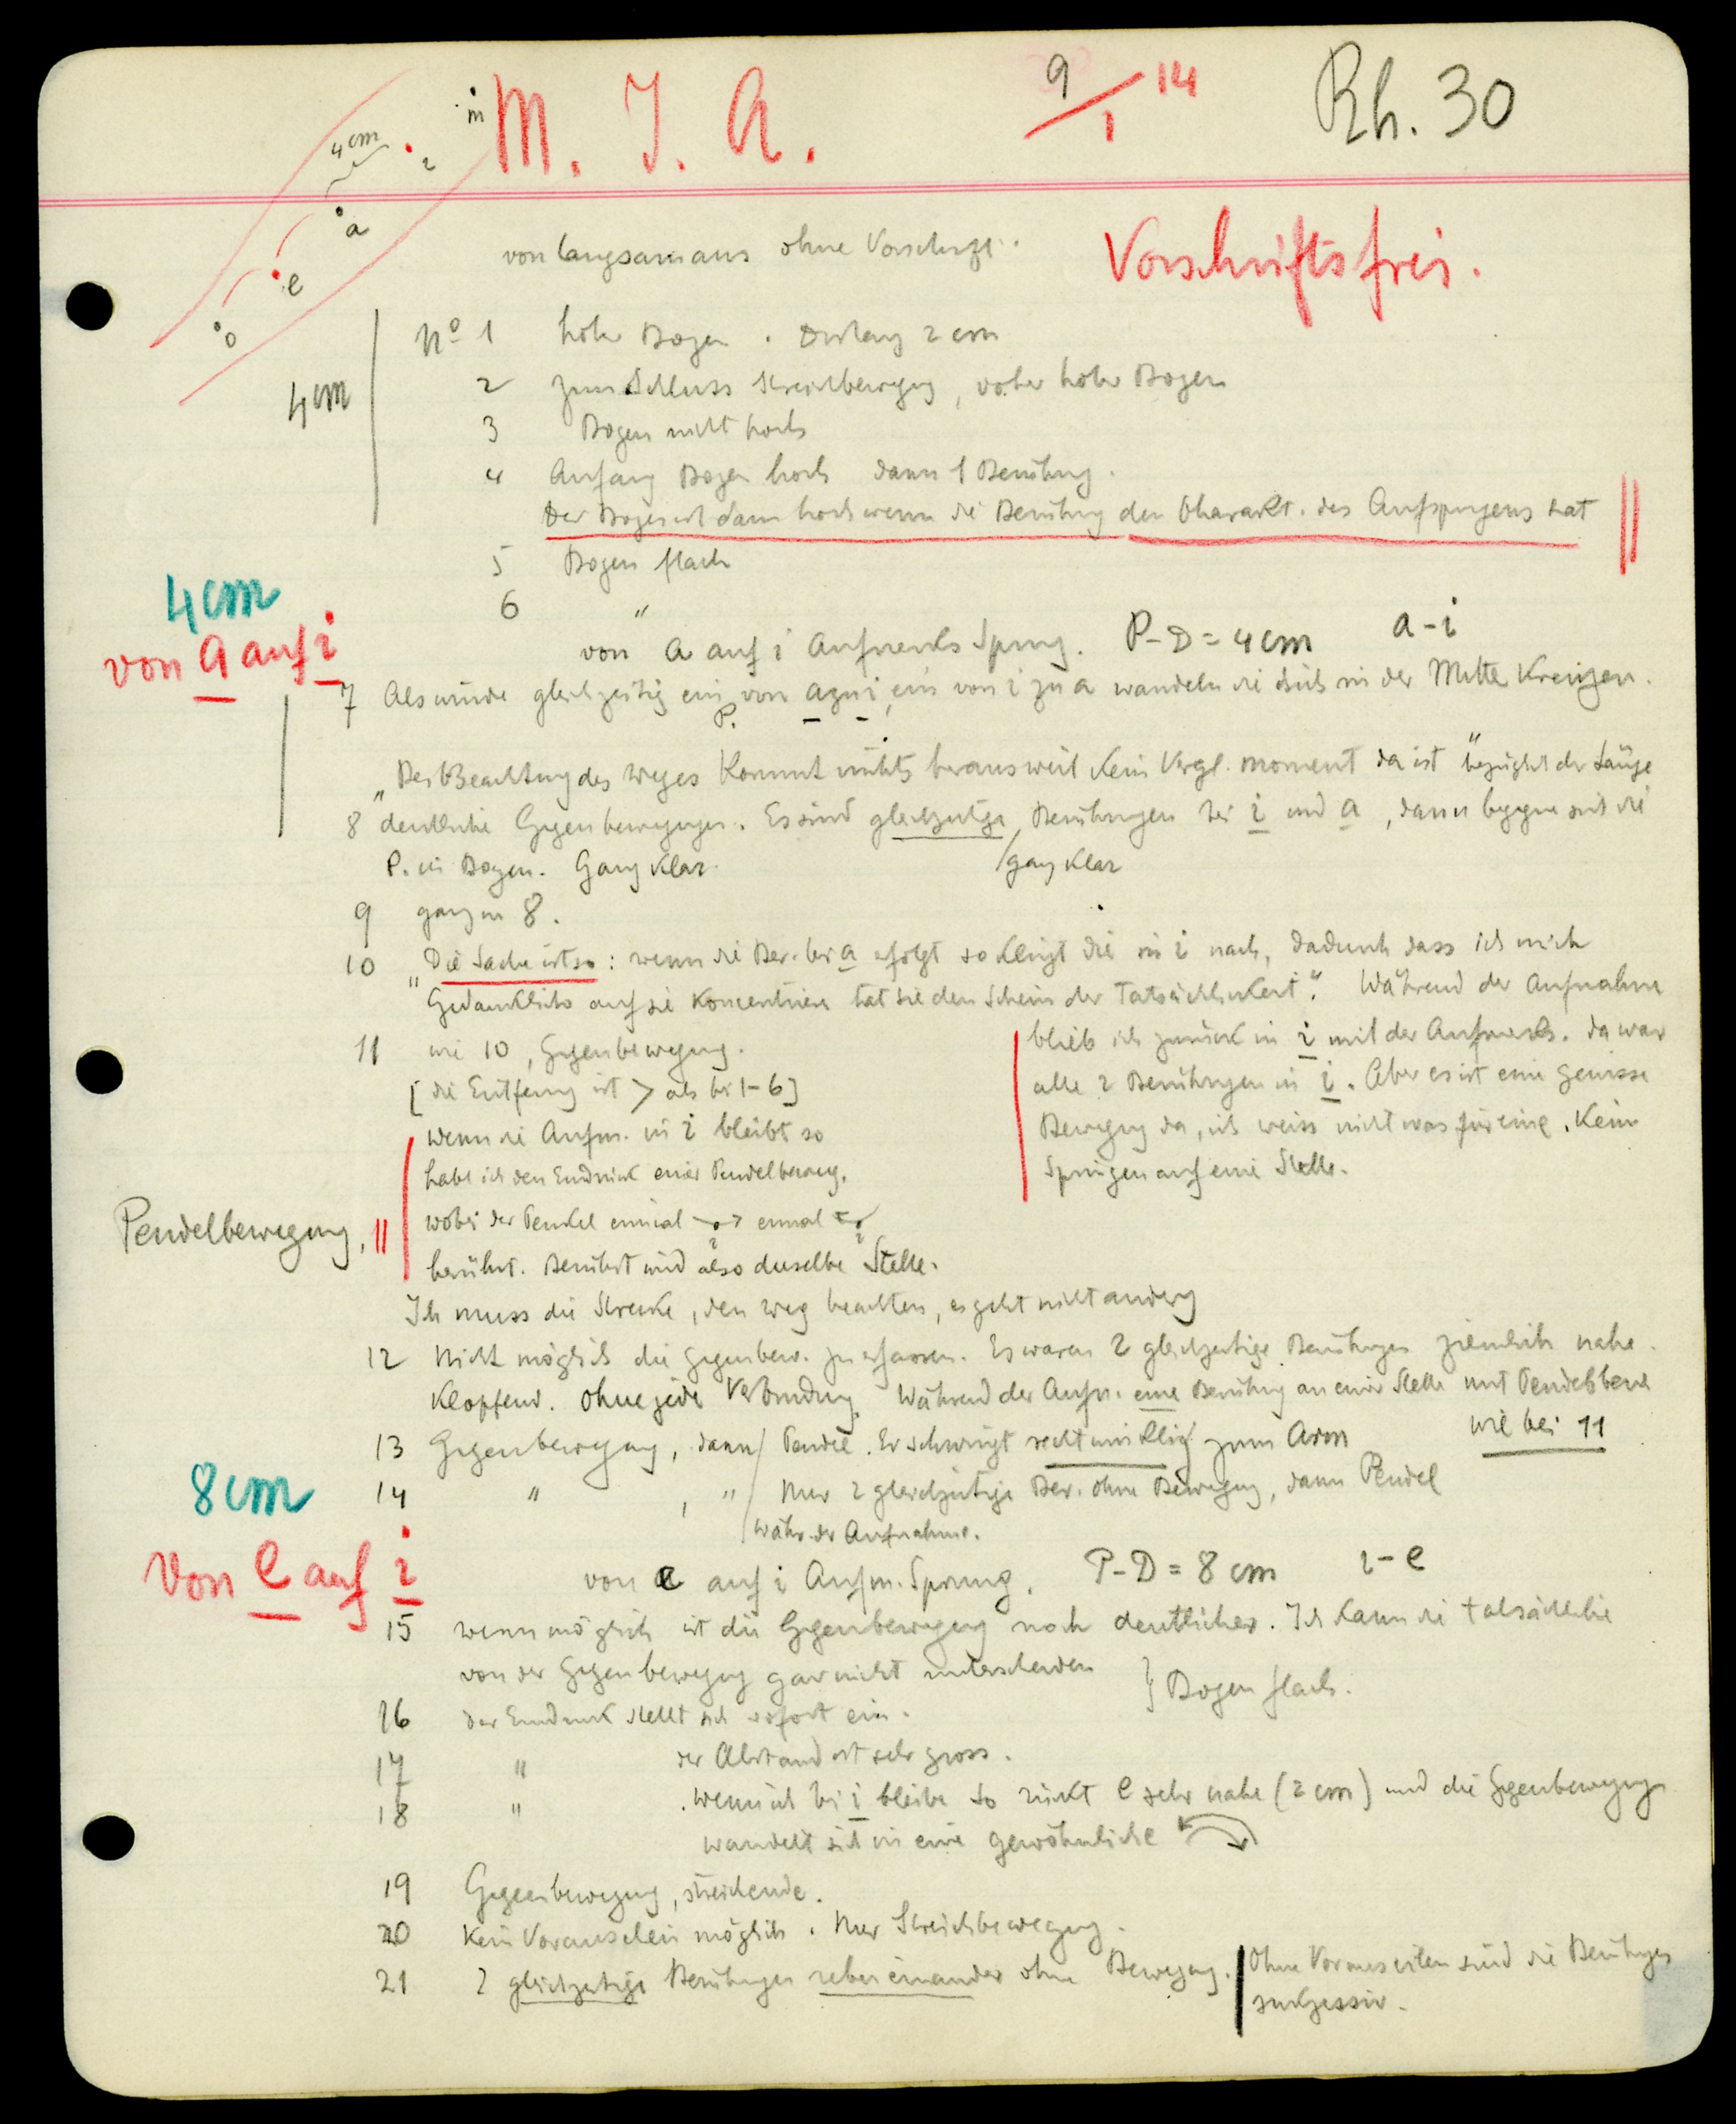 m
M. J. A.
9/1 14
Rh. 30
4 cm
i
a
e
o
von langsam aus ohne Vorschrift.
Vorschriftsfrei.
4 cm
No 1 hoher Bogen. Distanz 2 cm
2 zum Schluss Streichbewegung, vorher hoher Bogen
3 Bogen nicht hoch
4 Anfang Bogen hoch dann 1 Berührung.
Der Bogen ist dann hoch wenn die Berührung den Charakt. des Aufspringens hat
5 Bogen flach
6 "
4 cm
von a auf i
von a auf i Aufmerks Sprung. P-D = 4 cm a-i
7 Als würde gleichzeitig ein P. von a zu i, ein von i zu a wandeln die sich in der Mitte Kreuzen.
"Bei Beachtung des Weges Kommt nichts heraus weil Kein Vergl. moment da ist" bezüglich der Länge
8 deutliche Gegenbewegungen. Es sind gleichzeitige Berührungen bei i und a, dann begegnen sich die
P. im Bogen. Ganz Klar. /ganz Klar
9 ganz w 8.
10 "Die Sache ist so: wenn die Ber. bei a erfolgt so Klingt die in i nach, dadurch dass ich mich
Gedanklich auf sie Koncentriere hat sie den Schein der Tatsächlichkeit". Während der Aufnahme
blieb ich zurück in i mit der Aufmerks. da war
alle 2 Berührungen in i. Aber es ist eine gewisse
Bewegung da, ich weiss nicht was für eine. Kein
Springen auf eine Stelle.
11 wie 10, Gegenbewegung.
[die Entfernung ist > als bei 1-6]
wenn die Aufm. in i bleibt so
habe ich den Eindruck einer Pendelbeweg.
wobei der Pendel einmal → einmal ←
i i
berührt. Berührt wird also dieselbe Stelle.
Pendelbewegung,
Ich muss die Strecke, den Weg beachten, es geht nicht anders
12 Nicht möglich die Gegenbew. zu erfassen. Es waren 2 gleichzeitige Berührungen ziemlich nahe.
Klopfend. Ohne jede Verbindung. Während der Aufn. eine Berührung an einer Stelle mit Pendelbew
wie bei 11
13 Gegenbewegung, dann/ Pendel. Er schwingt rechtwinklig zum Arm
14 " , " / Nur 2 gleichzeitige Ber. ohne Bewegung, dann Pendel
währ. der Aufnahme.
8 cm
Von e auf i
von e auf i Aufm. Sprung. P-D = 8 cm i-e
15 wenn möglich ist die Gegenbewegung noch deutlicher. Ich kann die tatsächliche
von der Gegenbewegung gar nicht unterscheiden
} Bogen flach.
16 der Eindruck stellt sich sofort ein.
17 " der Abstand ist sehr gross.
18 " . Wenn ich bei i bleibe so rückt e sehr nahe (2 cm) und die Gegenbewegung
wandelt sich in eine gewöhnliche
19 Gegenbewegung, streichende.
20 Kein Vorauseilen möglich. Nur Streichbewegung.
21 2 gleichzeitige Berührungen nebeneinander ohne Bewegung.
Ohne Vorauseilen sind die Berührungen
sukzessiv.